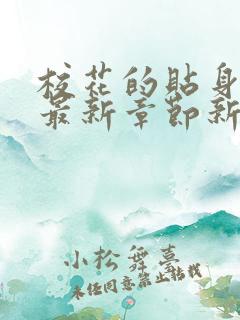 校花的贴身
最新章节新
小松舞墓
未经同意禁止转载